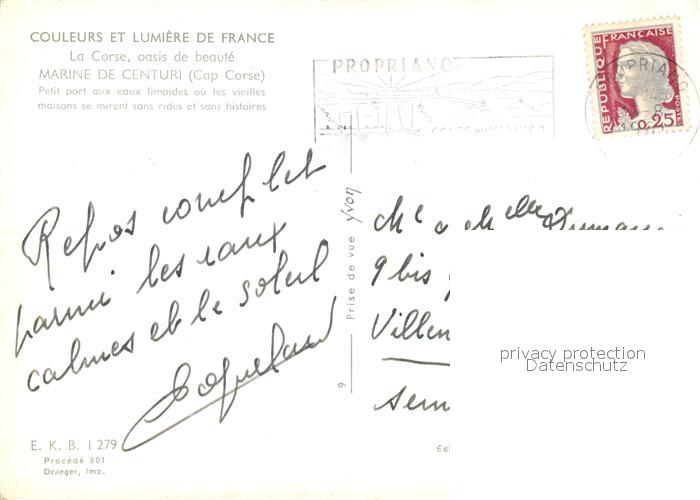 COULEURS ET LUMIÈRE DE FRANCE
La Corse, oasis de beauté
MARINE DE CENTURI (Cap Corse)
Petit port aux eaux limpides où les vieilles
maisons se mirent sans rides et sans histoires
PROPRIANO
REPUBLIQUE FRANÇAISE
0,25
POSTES
Repos complet
parmi les eaux
calmes et le soleil
Prise de vue yvon
9 bis
Villen
privacy protection
Datenschutz
6
E. K. B. 1279
Procédé 301
Draeger, Imp.
Éd